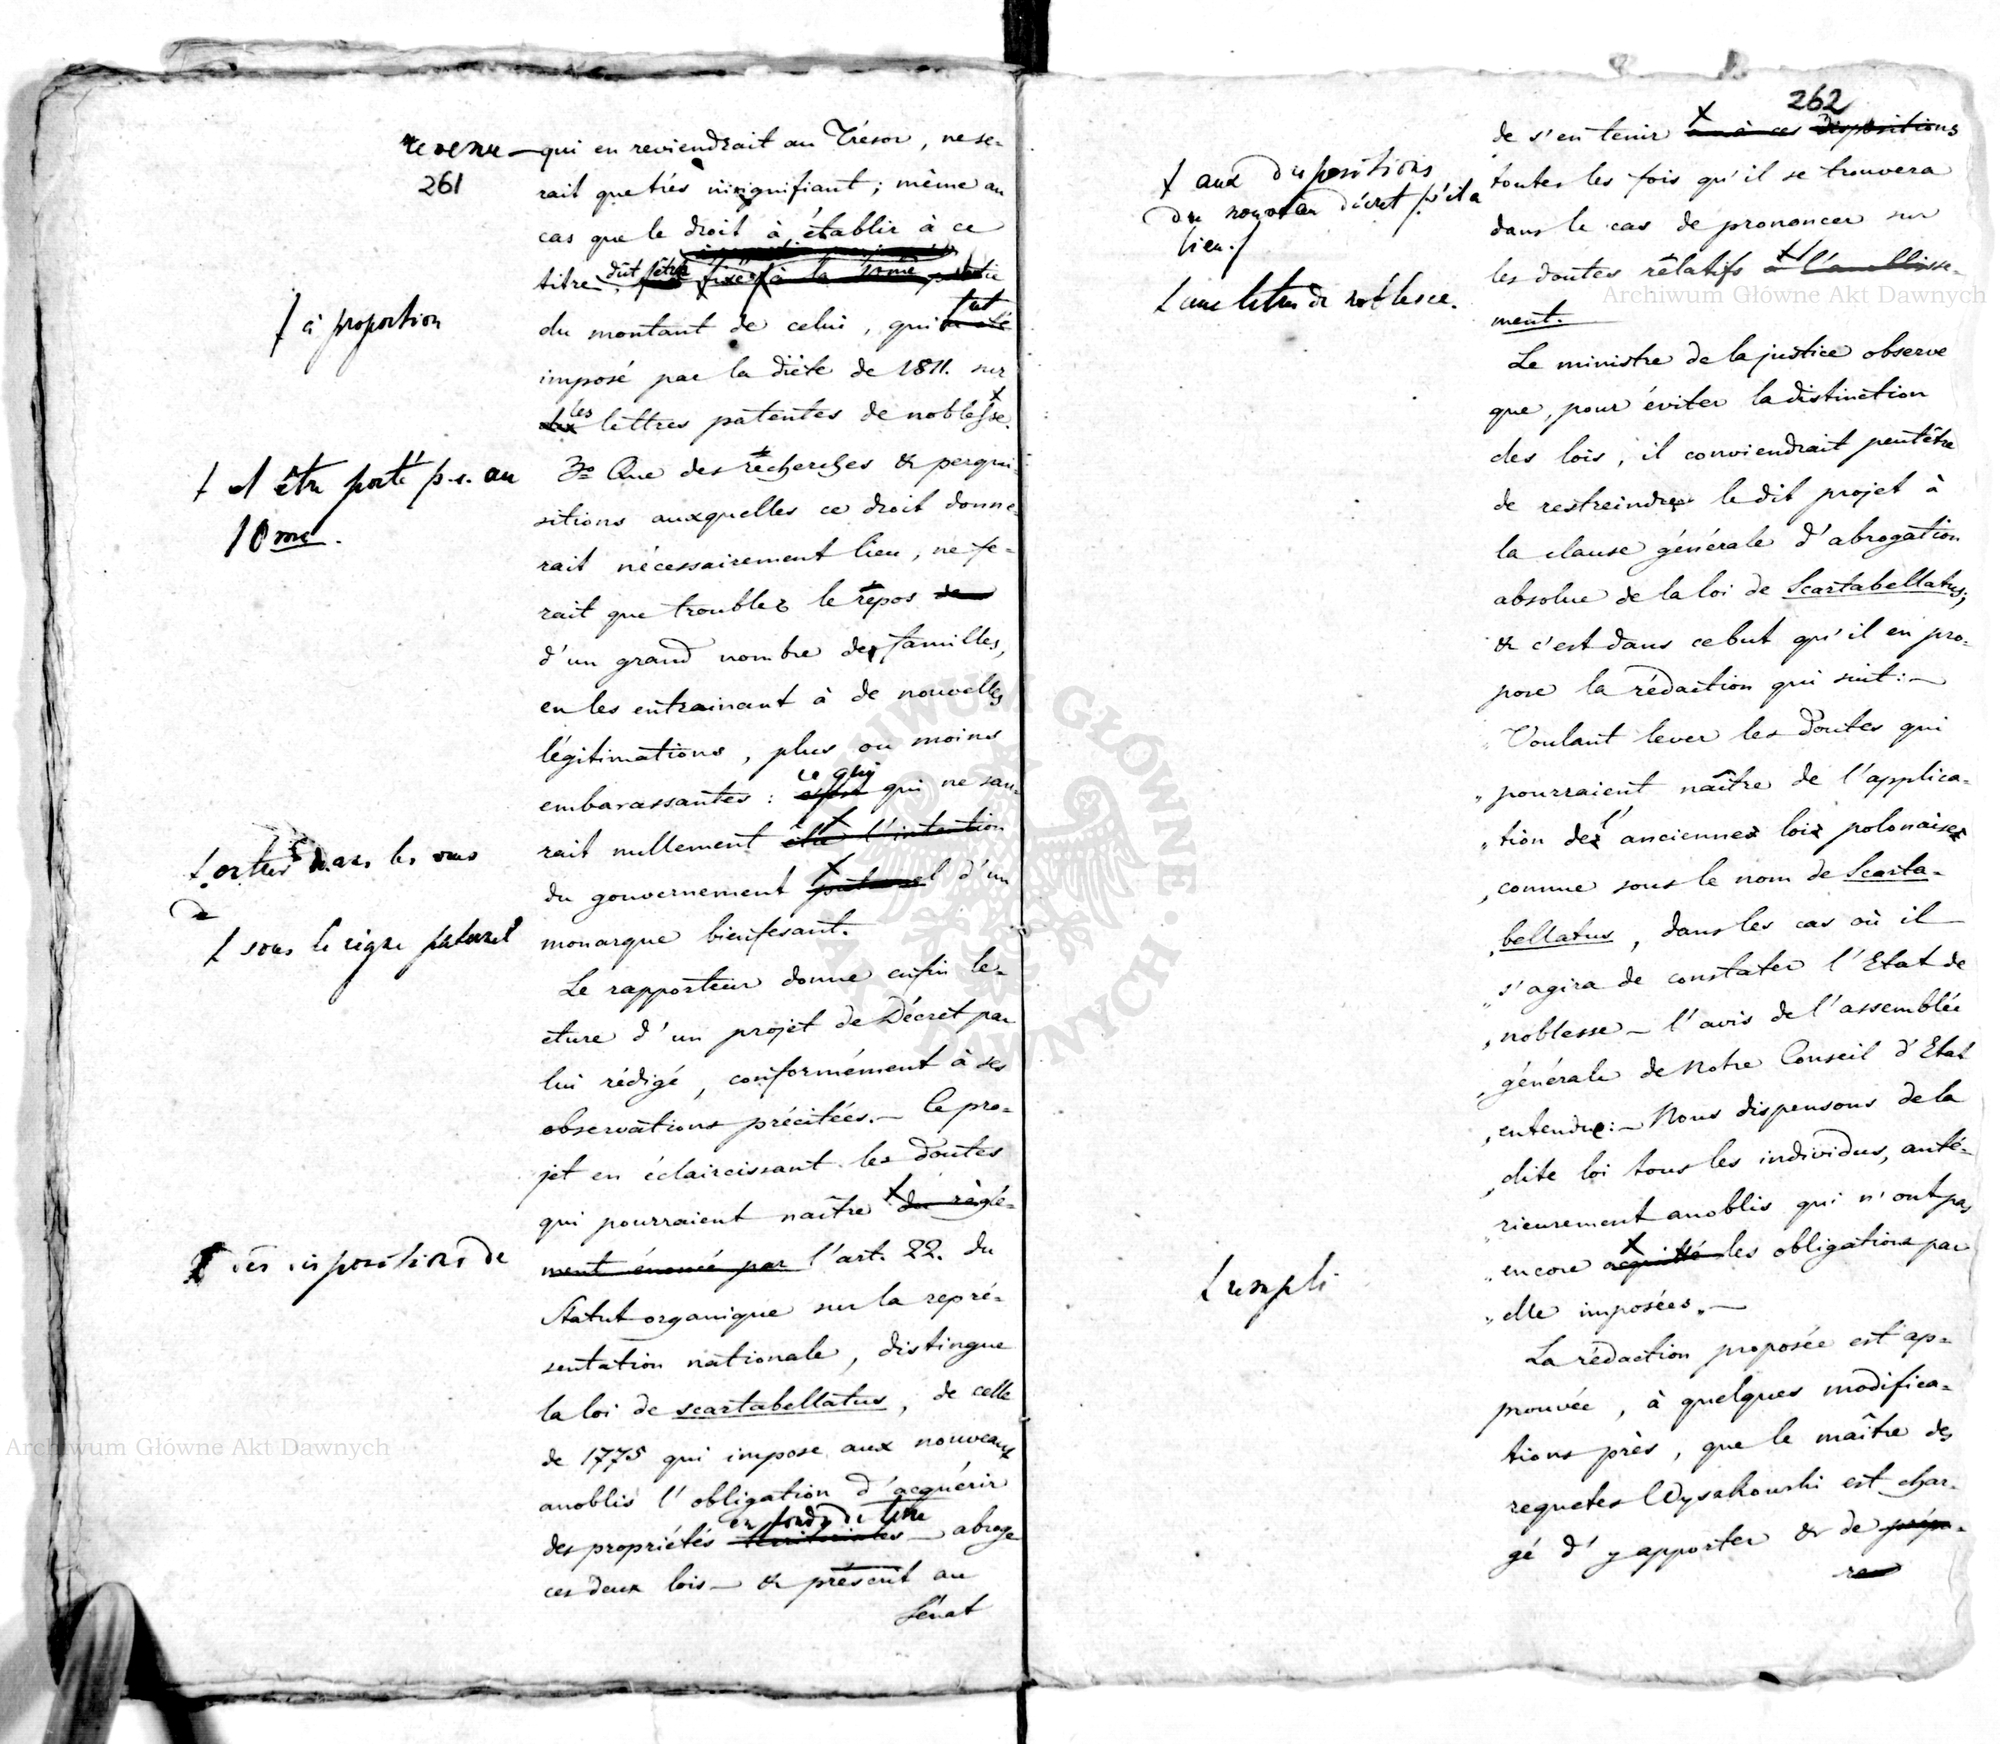 revenu — qui en reviendrait au Trésor, ne se-
261
rait que très insignifiant; même au
cas que le droit à établir à ce
titre, dût être fixé à la 10me partie
ƚ à proportion
du montant de celui, qui fut
imposé par la diète de 1811. sur
les lettres patentes de noblesse.
ƚ et être porté p. e. au
10me.
3o Que des recherches & perqui-
sitions auxquelles ce droit donne-
rait nécessairement lieu, ne fe-
rait que troubler le repos de
d'un grand nombre de familles,
en les entrainant à de nouvelles
légitimations, plus ou moins
embarassantes: ce qui qui ne sau-
rait nullement être l'intention
ƚ entrer dans les vues
du gouvernement paternel d'un
de
ƚ sous le règne paternel
monarque bienfesant.
Le rapporteur donne enfin le-
cture d'un projet de Décret par
lui rédigé, conformément à ses
observations précitées. — Ce pro-
jet en éclaircissant les doutes
qui pourraient naître du régle-
ƚ des dispositions de
ment énoncé par l'art. 22. du
Statut organique sur la repré-
sentation nationale, distingue
la loi de scartabellatus, de celle
de 1775 qui impose aux nouveaux
anoblis l'obligation d'acquérir
en fonds de terre
des propriétés territoriales — abroge
ces deux lois — & présent au
Sénat
262
de s'en tenir à ces dispositions
ƚ aux dispositions
du nouveau décret s'il a
lieu.
toutes les fois qu'il se trouvera
dans le cas de prononcer sur
les doutes rélatifs à l'anoblisse-
ƚ une lettre de noblesse.
ment.
Le ministre de la justice observe
que, pour éviter la distinction
des lois, il conviendrait peutêtre
de restreindre le dit projet à
la clause générale d'abrogation
absolue de la loi de Scartabellatus;
& c'est dans ce but qu'il en pro-
pose la rédaction qui suit: —
„Voulant lever les doutes qui
„pourraient naître de l'applica-
„tion de l'ancienne loi polonaise
„connue sous le nom de Scarta-
„bellatus, dans les cas où il
„s'agira de constater l'Etat de
„noblesse — l'avis de l'assemblée
„générale de Notre Conseil d'Etat
„entendue: — Nous dispensons de la
„dite loi tous les individus, anté-
„rieurement anoblis qui n'ont pas
„encore acquitté les obligations par
ƚ rempli
„elle imposées. —
La rédaction proposée est ap-
prouvée, à quelques modifica-
tions près, que le maître des
requetes Wyszkowski est char-
gé d'y apporter & de prépa-
rer